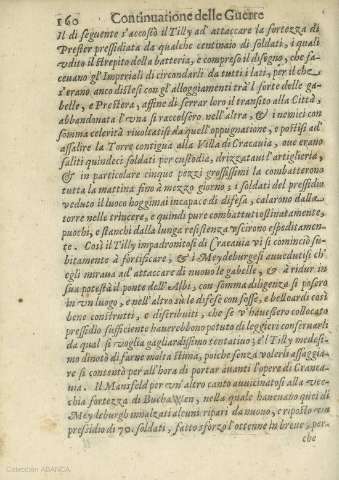 160 Continuatione delle Guerre
il dì seguente s'accostò il Tilly ad' attaccare la fortezza di
Prester pressidiata da qualche centinaio di soldati, i quali
vdito il strepito della batteria, e compreso il disegno, che fa-
ceuano gl'Imperiali di circondarli da tutti i lati, per il che
s'erano anco distesi con gl'alloggiamenti trà'l forte delle ga-
belle, e Prestera, affine di serrar loro il transito alla Città,
abbandonata l'vna si raccolsero nell'altra, & i nemici con
somma celerità riuoltatisi da quell'oppugnatione, e postisi ad'
assalire la Torre contigua alla Villa di Cracauia, oue erano
saliti quindeci soldati per custodia, drizzatauì l'artiglieria,
& in particolare cinque pezzi grossissimi la combatterono
tutta la mattina fino à mezzo giorno; i soldati del pressidio
veduto il luoco hoggimai incapace di difesa, calarono dalla
torre nelle trincere, e quindi pure combattuti ostinatamente,
puochi, e stanchi dalla lunga resistenza vscirono espeditamen-
te. Così il Tilly impadronitosi di Cracauia vi si cominciò su-
bitamente à fortificare, & i Meydeburgesi auuedutisi ch'
egli miraua ad' attaccar di nuouo le gabelle, & à ridur in
sua potestà il ponte dell'Albi, con somma diligenza si posero
in vn luogo, e nell'altro sù le difese con fosse, e belloardi così
bene construtti, e distribuiti, che se v'hauessero collocato
pressidio sufficiente hauerebbono potuto di leggieri conseruarli
da qual si voglia gagliardissimo tentatiuo; e'l Tilly medesi-
mo dinotò di farne molta stima, poiche senza volerli assaggia-
re si contentò per all'hora di portar auanti l'opere di Cracau-
uia. Il Mansfeld per vn'altro canto auuicinatosi alla vec-
chia fortezza di Buchavven, nella quale haueuano quei di
Meydeburgh innalzati alcuni ripari da nuouo, e riposto vn
pressidio di 70. soldati, fatto sforzo l'ottenne in breue, per-
che
Colección ABANCA